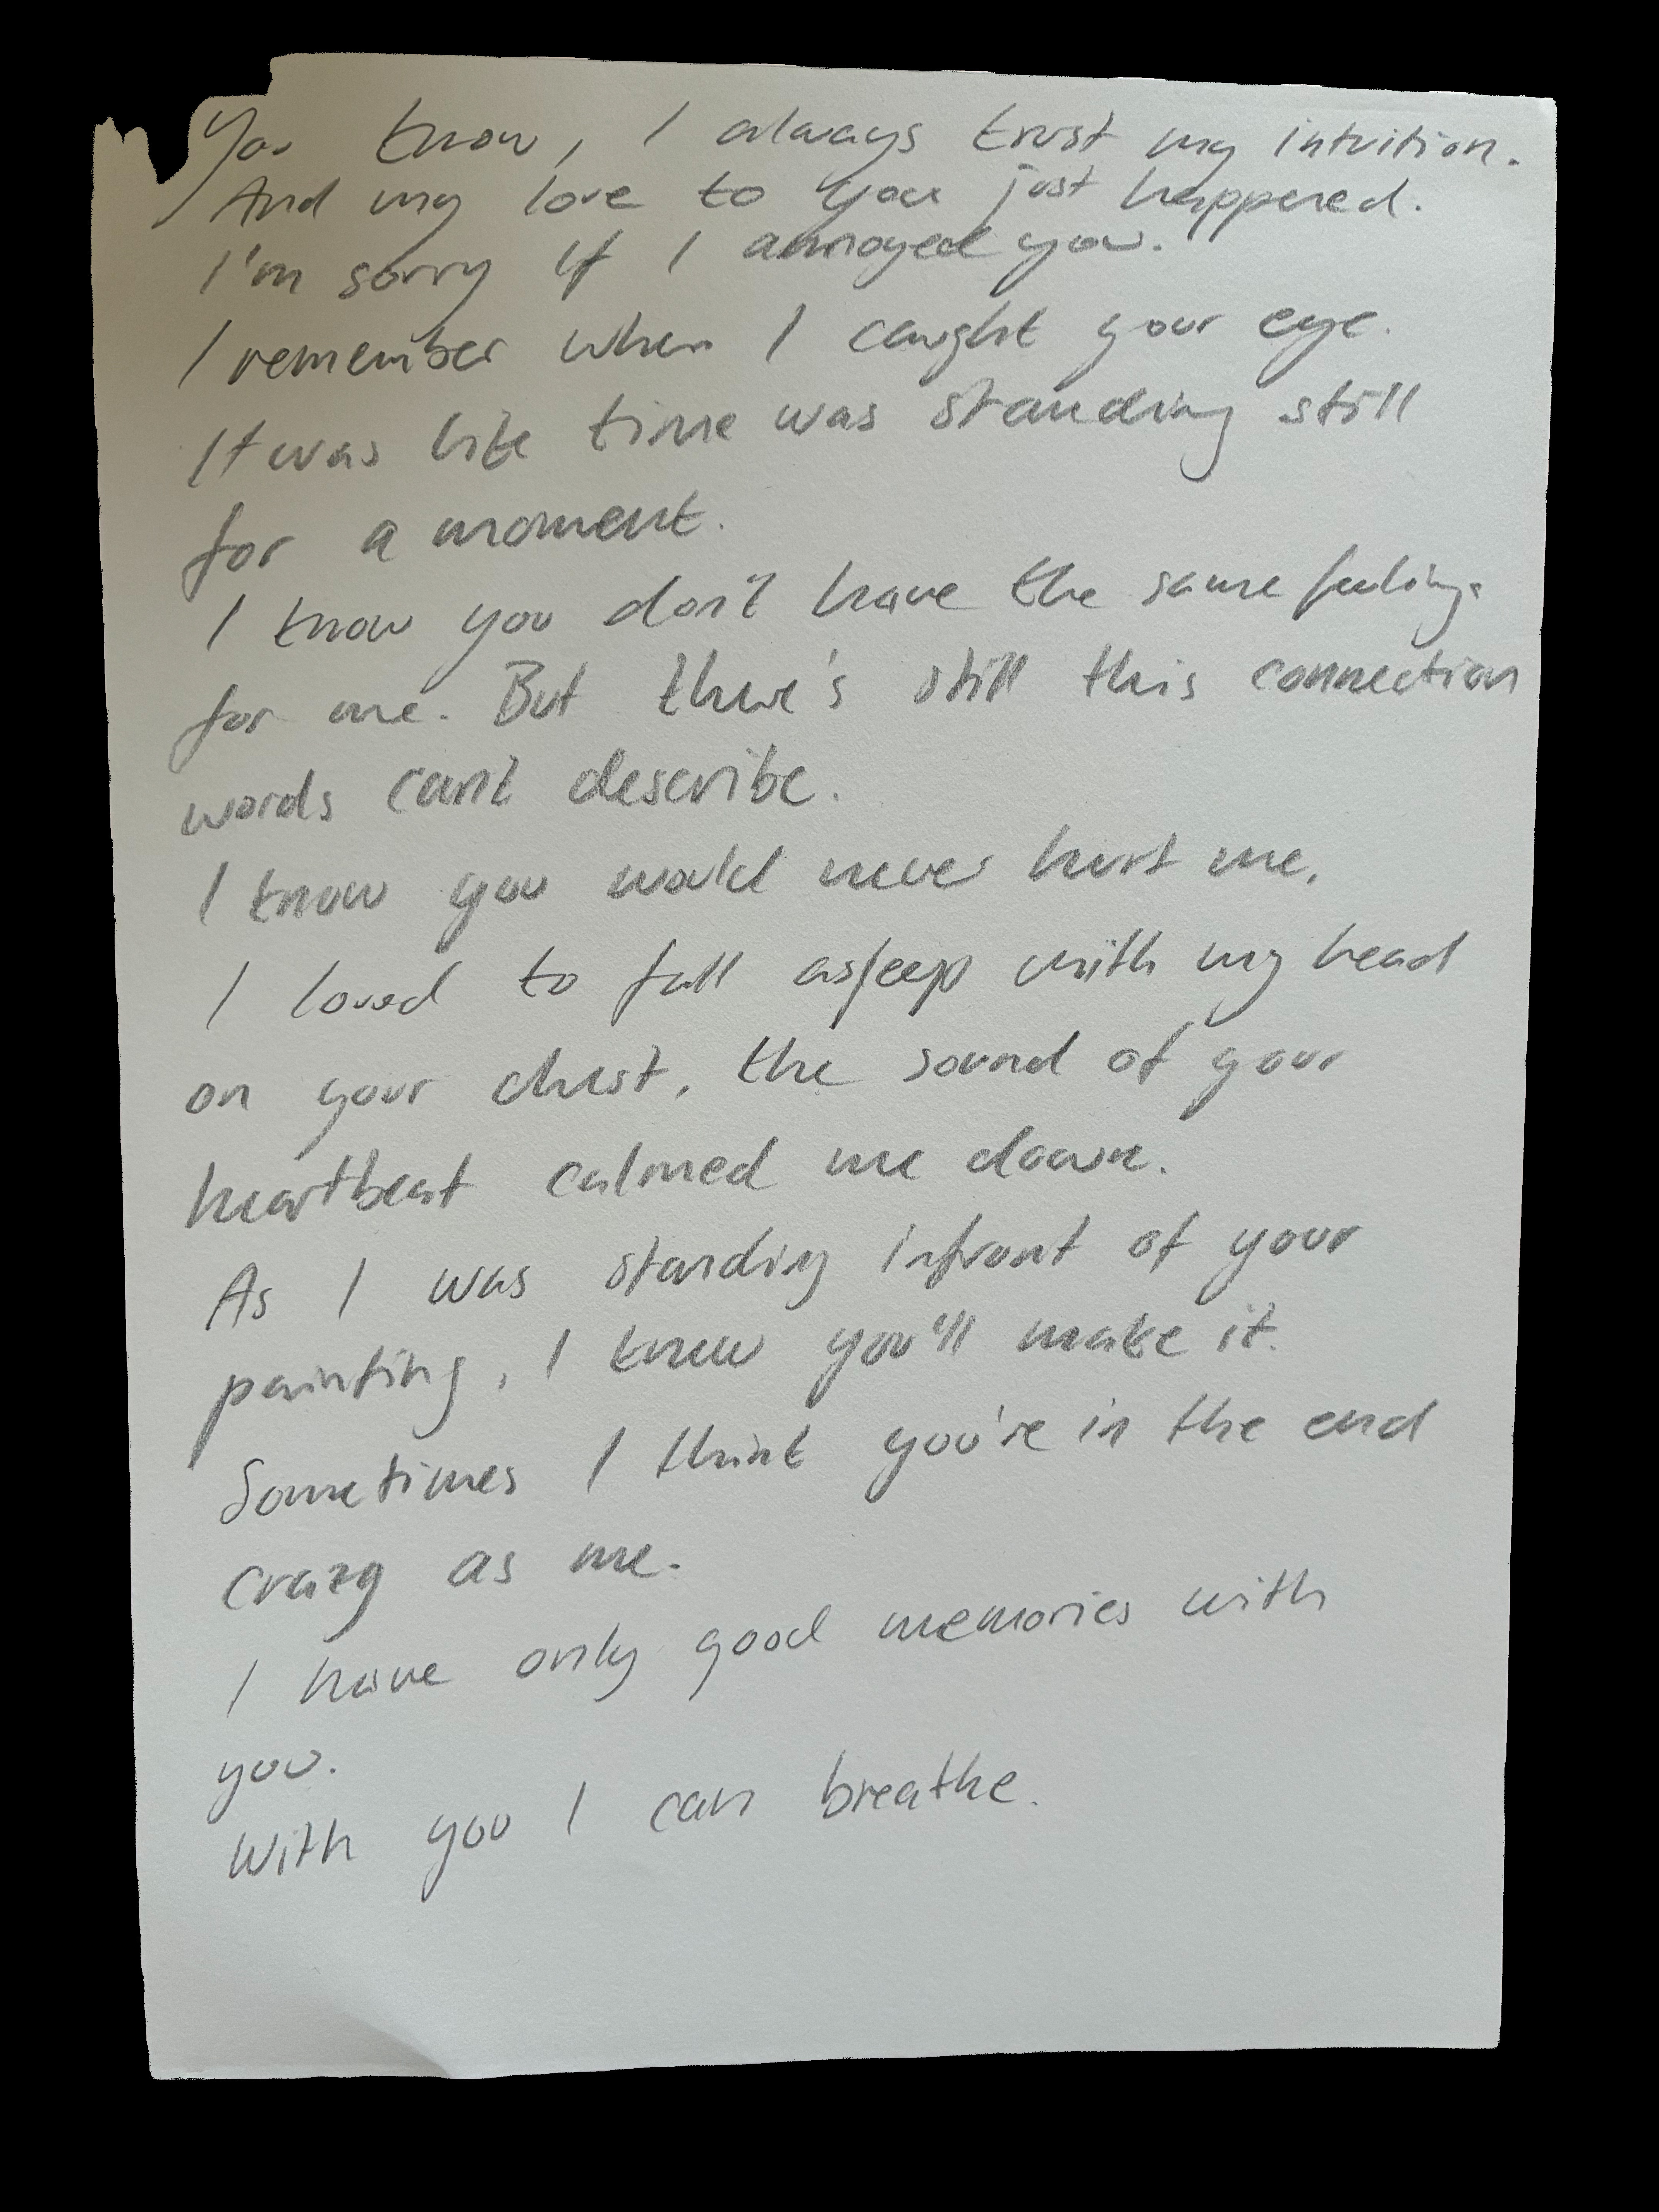 You know, I always trust my intuition.
And my love to you just happened.
I'm sorry if I annoyed you.
I remember when I caught your eye.
It was like time was standing still
for a moment.
I know you don't have the same feelings
for me. But there's still this connection
words can't describe.
I know you would never hurt me.
I loved to fall asleep with my head
on your chest, the sound of your
heartbeat calmed me down.
As I was standing infront of your
painting, I knew you'll make it.
Sometimes I think you're in the end
crazy as me.
I have only good memories with
you.
With you I can breathe.